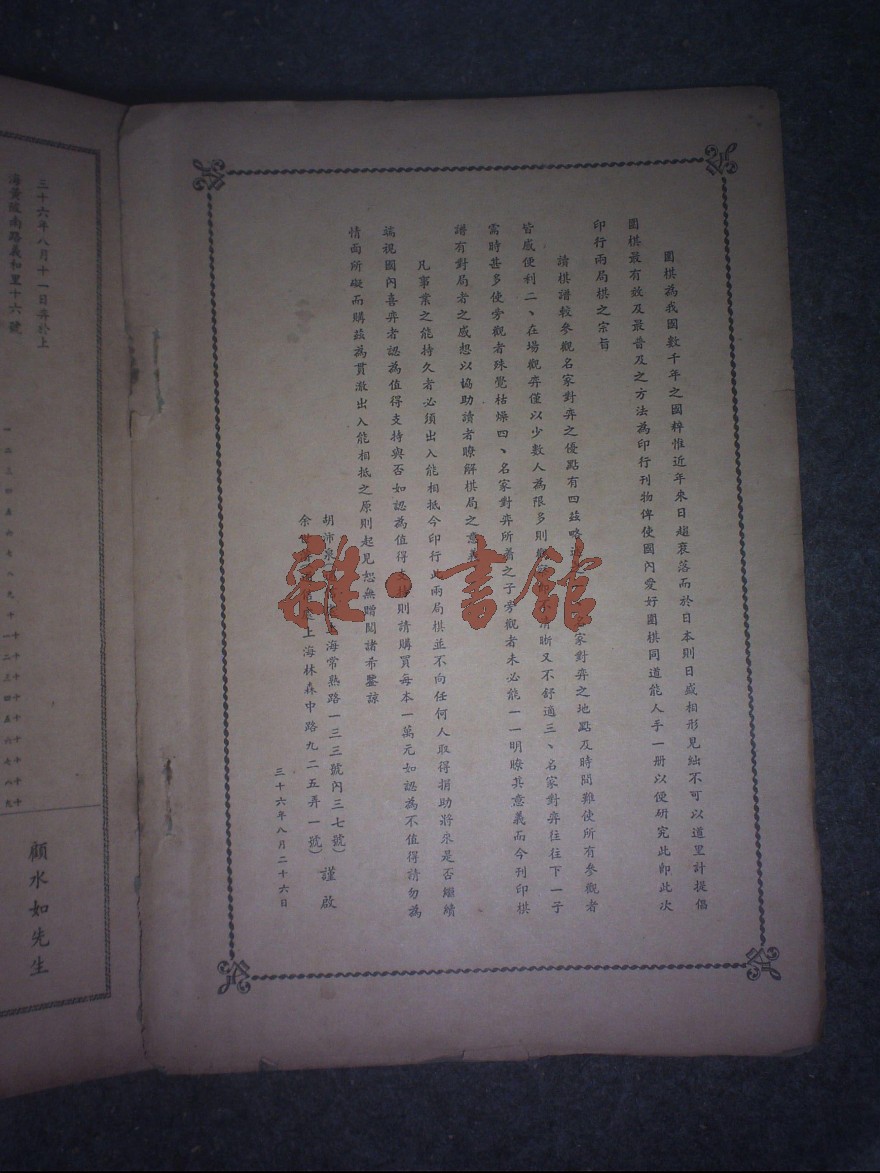 圍棋為我國數千年之國粹惟近年來日趨衰落而於日本則日盛相形見絀不可以道里計提倡
圍棋最有效及最普及之方法為印行刊物俾使國內愛好圍棋同道能人手一册以便研究此即此次
印行兩局棋之宗旨
讀棋譜較參觀名家對弈之優點有四茲略 家對弈之地點及時間難使所有參觀者
皆感便利二、在場觀弈僅以少數人為限多則 清晰又不舒適三、名家對弈往往下一子
需時甚多使旁觀者殊覺枯燥四、名家對弈所着之子旁觀者未必能一一明瞭其意義而今刊印棋
譜有對局者之感想以協助讀者瞭解棋局之意義
凡事業之能持久者必須出入能相抵今印行此兩局棋並不向任何人取得捐助將來是否繼續
端視國內喜弈者認為值得支持與否如認為值得支持則請購買每本一萬元如認為不值得請勿為
情面所礙而購茲為貫澈出入能相抵之原則起見恕無贈閱諸希鑒諒
胡沛泉 海常熟路一三三號內三七號)
余 上海林森中路九二五弄一號)
謹啟
三十六年八月二十六日
三十六年八月十一日弈於上
海黃陂南路義和里十六號
顧水如先生
雜·書館